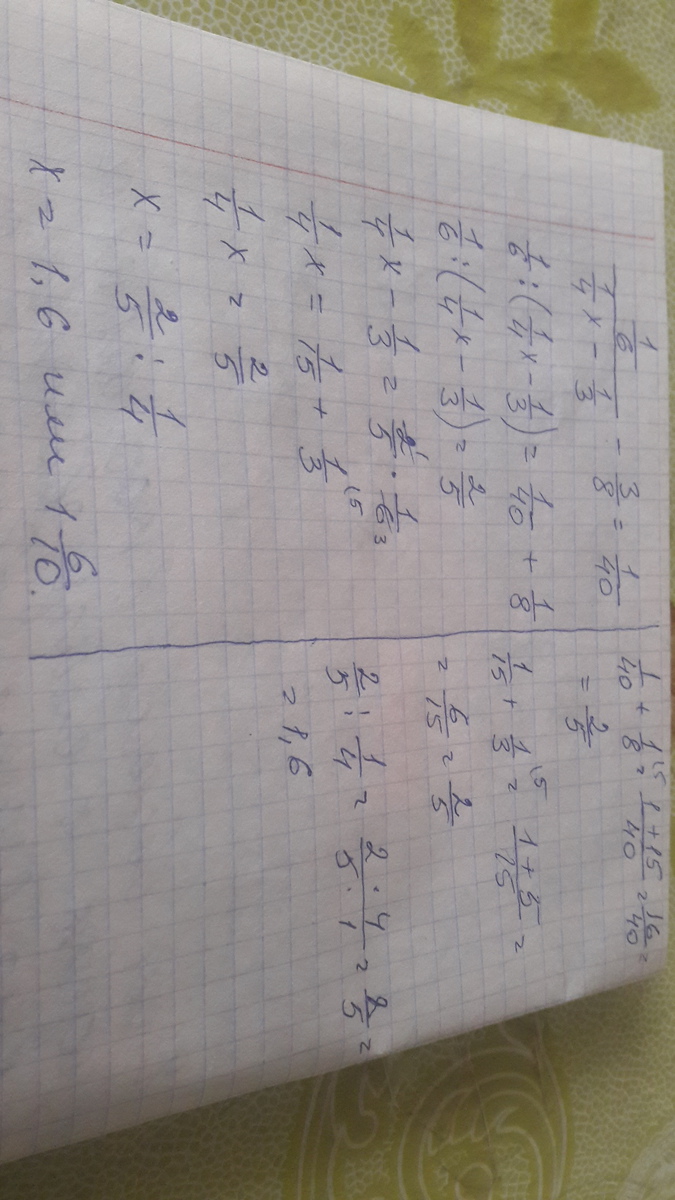 1/6 / (1/4 x - 1/3) - 3/8 = 1/40
1/6 : (1/4 x - 1/3) = 1/40 + 1/8
1/6 : (1/4 x - 1/3) = 2/5
1/4 x - 1/3 = 2/5 · 1/6 1 3
1/4 x = 1/15 + 1/3 15
1/4 x = 2/5
x = 2/5 : 1/4
x = 1,6 или 1 6/10.
1/40 + 1/8 15 = 1+15/40 = 16/40 =
= 2/5
1/15 + 1/3 15 = 1+5/15 =
= 6/15 = 2/5
2/5 : 1/4 = 2·4/5·1 = 8/5 =
= 1,6